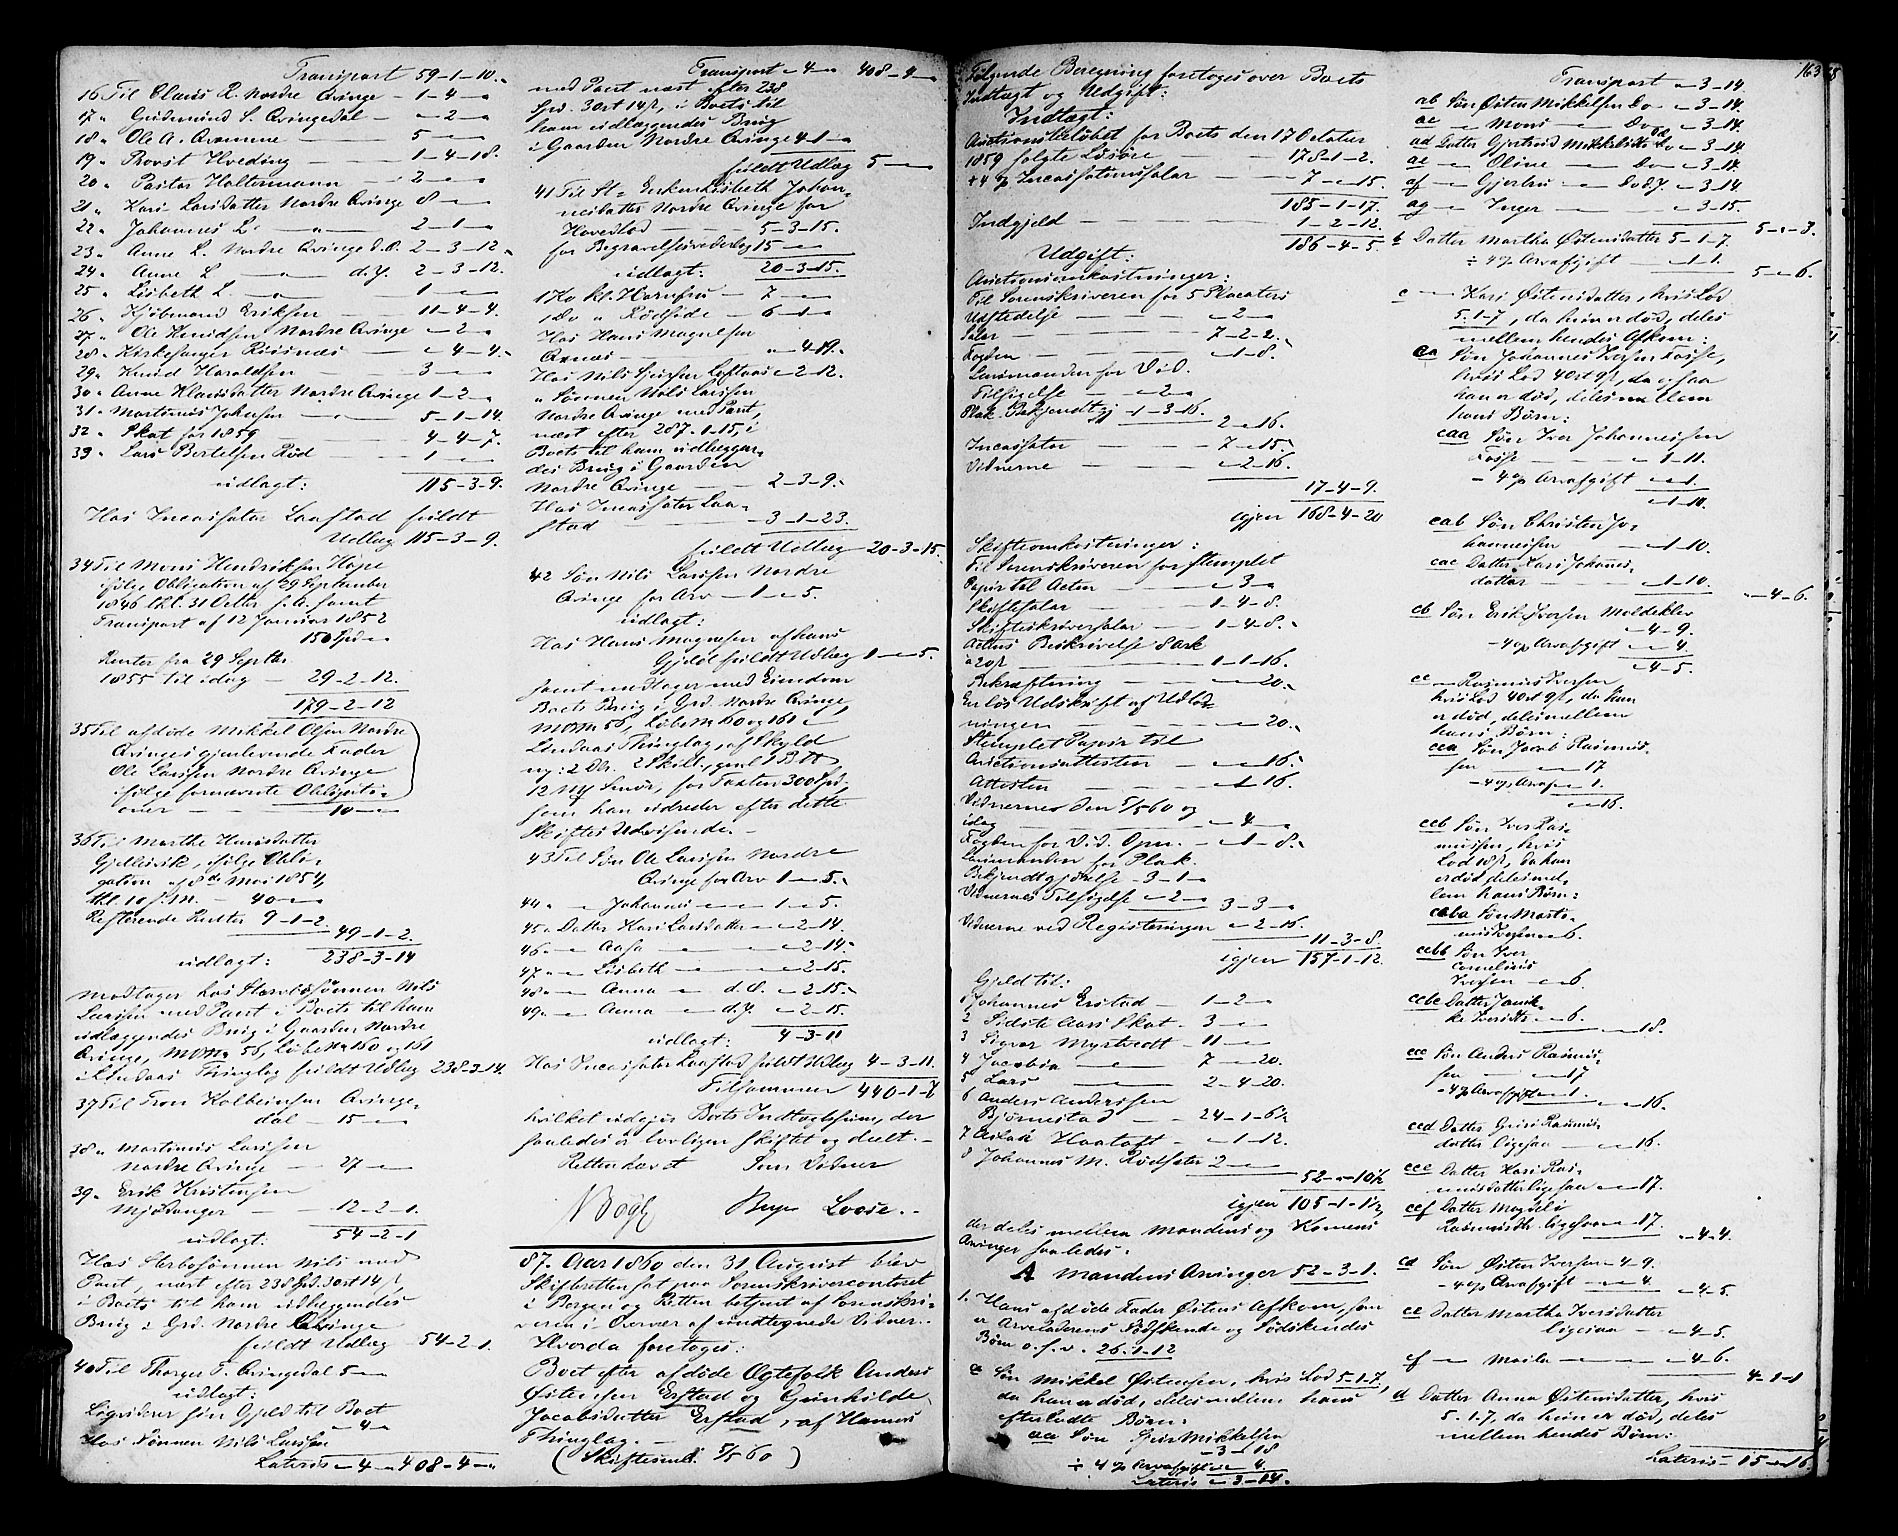 Transport 59-1-10.
16 Til Claus R. Nordre Qvinge - 1-4-"
17 " Gudmund S. Qvingedal - "-2-"
18 " Ole A. 5-"-"
19 " Borsit Hveding 1-4-18.
20 " Pastor Haltermann 2-"-"
21 " Kari Larsdatter Nordre Qvinge 8-"-"
22 " Johannes L. " 2-1-"
23 " Anne L. Nordre Qvinge d.Æ. 2-3-12.
24 " Anne L. " d.Y. 2-3-12.
25 " Lisbeth L. 1-"-"
26 " Kjöbmand Eriksen 11-4-4.
27 " Ole Knudsen Nordre Qvinge "-2-"
28 " Kirkesanger "-4-4.
29 " Knud Haraldsen 3-"-"
30 " Anne Klausdatter Nordre Qvinge 1-2-"
31 " Martinus Johnsen 5-1-14.
32 " Skat for 1859 4-4-7.
33 " Lars Bertelsen Röd 1-"-"
udlagt: 115-3-9.
Hos Incassator Laastad fuldt
Udlæg 115-3-9.
34 Til Mons Hendriksen Hope
ifölge Obligation af 29 September
1846 thl. 31 Octbr s.A. samt
Transport af 12 Januar 1852
150 Spd
Renter fra 29 Septbr
1855 til idag - 29-2-12.
179-2-12
35 Til afdöde Mikkel Olsen Nordre
Qvinges gjenlevende Fader
Ole Larssen Nordre Qvinge
ifölge fornævnte Obligati-
oner - 10-"-"
36 Til Marthe Hansdatter
Gjellesvik, ifölge Obli-
gation af 8de Mai 1854,
thl. 10 s.M. - 40-"
Resterende Renter 9-1-2.
49-1-2.
udlagt: 238-3-14
modtager hos Stervbosönnen Nils
Larssen med Pant i Boets til ham
udlæggendes Brug i Gaarden Nordre
Qvinge, Mat No 56, Löbe No 160 og 161
i Lindaas Thinglag fuldt Udlæg 238-3-14.
37 Til Tron Kolbeinsen Qvinge-
dal - 15-"-"
38 " Martinus Larssen
Nordre Qvinge - 27-"
39 " Erik Kristensen
Mjösanger - 12-2-1.
54-2-1
udlagt:
Hos Sterbosönnen Nils med
Pant, næst efter 238 Spd. 3 ort 14 s,
i Boets til ham udlæggendes
Brug i Grd. Nordre Qvinge
fuldt Udlæg - 54-2-1.
40 Til Thorger T. Qvingedal 5-"
udlagt:
Ligviderer sin Gjeld til Boet
"-4-"
Hos Sönnen Nils Larssen
Lateris "-4-" 408-4-"
Transport "-4-" 408-4-"
med Pant næst efter 238
Spd. 3 ort 14 s, i Boets til
ham udlæggendes Brug
i Gaarden Nordre Qvinge 4-1-"
fuldt Udlæg 5-"-"
41 Til St. Enken Lisbeth Johan-
nesdatter Nordre Qvinge for
Hovedlod - 5-3-15.
for Begravelsesvederlag 15-"-"
udlagt: 20-3-15.
1 Ko kl. Hornfru - 7-"-"
1 Do " Rödside - 6-1-"
Hos Hans Magnesen
"-4-19.
Hos Nils "-2-12.
" Sönnen Nils Larssen
Nordre Qvinge med Pant,
næst efter 287-1-15, i
Boets til ham udlæggen-
des Brug i Gaarden
Nordre Qvinge - 2-3-9.
Hos Incassator Laa-
stad - 3-1-23.
fuldt Udlæg 20-3-15.
42 Sön Nils Larssen Nordre
Qvinge for Arv - 1-"-5.
udlagt:
Hos Hans Magnesen af hans
Gjeld fuldt Udlæg 1-"-5.
samt modtager med Eiendom
Boets Brug i Grd. Nordre Qvinge,
Mat No 56, Löbe No 160 og 161 i
Lindaas Thinglag, af Skyld
ny: 2 Dlr. 2 Skill., gml. 1 B.
12 Mk Smör, for Taxten 300 Spd.,
som han udreder efter dette
Skiftes Udvisende. -
43 Til Sön Ole Larssen Nordre
Qvinge for Arv 1-"-5.
44 " " Johannes "-1-"-5.
45 " Datter Kari Larsdatter "-2-14.
46 " " Aasa "-2-14.
47 " " Lisbeth "-2-15.
48 " " Anna d.Æ. "-2-15.
49 " " Anna d.Y. "-2-15.
udlagt: 4-3-11
Hos Incassator Laastad fuldt Udlæg 4-3-11.
Tilsammen 440-1-7
hvilket udgjör Boets Indtægtssum, der
saaledes er lovligen skiftet og deelt. -
Retten hævet Som Vidner
87. Aar 1860 den 31 August blev
Skifteretten sat paa Sorenskrivercontoret
i Bergen og Retten betjent af Sorenskri-
veren i Overvær af undtegnede Vidner.
Hvorda foretoges:
Boet efter afdöde Ægtefolk Anders
Östensen Erstad og Gunhilde
Jacobsdatter Erstad, af Hammers
Thinglag. -
(Skiftesml. 5/5 60)
163
Fölgende Beregning foretoges over Boets
Indtægt og Udgift:
Indtægt:
Auctionsbelöbet for Boets den 17 October
1859 solgte Lösöre 178-1-2.
+ 4 p Incassationssalar 7-"-15.
185-1-17.
Indgjeld 1-2-12.
186-4-5.
Udgift:
Auctionsomkostninger:
Til Sorenskriveren for 5 Placaters
Udstedelse "-2-"
Salar 7-2-2.
Fogden "-1-8.
Lensmanden for Vid.
Tilsigelse "-2-"
Plak. Bekjendtgj. 1-3-16.
2-"-16.
Incassator 7-"-15.
Vidnerne "-2-16.
17-4-9.
igjen 168-4-20
Skifteomkostninger:
Til Sorenskriveren for stemplet
Papir til Acten "-3-"
Skiftesalar 1-4-8.
Skifteskriversalar 1-4-8.
Actens Beskrivelse 8 ark
a 20 s 1-1-16.
Bekræftning "-"-20.
En lös Udskrift af Udlöd-
ningen "-"-20.
Stemplet Papir til
Auctionsattesten "-"-16.
Attesten "-1-16.
Vidnerne den 5/5 60 og
idag "-4-"
Fogden for Vid. Opn. "-1-8.
Lensmanden for Plak.
Bekjendtgjörelse 3-1-"
Vidnernes Tilsigelse "-2-"
3-3-"
Vidnerne ved Registeringen "-2-16.
11-3-8.
igjen 157-1-12.
Gjeld til:
1 Johannes Erstad - 1-2-"
2 Sidste Aars Skat 3-"-"
3 Sigvor Myrtvedt 11-"-"
4 Jacobia 7-"-20.
5 Lars 2-4-20.
6 Anders Anderssen
Björnestad 24-1-6½
7 Haatoft - "-1-12.
8 Johannes M. Rödseter 2-"-"
52-"-10½
igjen 105-1-1½,
der deles mellem Mandens og Konens
Arvinger saaledes:
A Mandens Arvinger 52-3-1.
1. Hans afdöde Fader Östens Afkom, som
er Arveladerens Södskende og Södskendes
Börn o.s.v. 26-1-12
a Sön Mikkel Östensen, hvis Lod 5-1-7,
da han er död, deles mellem hans
efterladte Börn:
aa Sön Mikkelsen
"-3-18
÷ 4 p Arvafgift "-"-4.
Lateris "-3-14.
Transport "-3-14.
ab Sön Östen Mikkelsen Do "-3-14.
ac " Mons Do "-3-14.
ad Datter Gjertrud Mikkelsdtr Do "-3-14.
ae " Oline Do "-3-14.
af " Gjertru Do d.Y. "-3-14
ag " Inger "-3-15.
5-"-3.
b Datter Martha Östensdatter 5-1-7.
÷ 4 p Arvafgift "-1-1.
5-"-6.
c " Kari Östensdatter, hvis Lod
5-1-7, da hun er död, deles
mellem hendes Afkom:
ca Sön Johannes Iversen Fosse,
hvis Lod 4 ort 9 s, da ogsaa
han er död, deles mellem
hans Börn:
caa Sön Iver Johannessen
Fosse "-1-11.
- 4 p Arvafgift "-"-1.
"-1-10.
cab Sön Christen Jo-
hannessen "-1-10.
cac Datter Kari Johannes-
datter "-1-10.
"-4-6.
cb Sön Erik Iversen Moldeklev
"-4-9.
- 4 p Arvafgift "-"-4.
"-4-5.
cc " Rasmus Iversen
hvis Lod 4 ort 9 s, da han
er död, deles mellem
hans Börn:
cca Sön Jacob Rasmus-
sen "-"-17
- 4 p Arvafg. "-"-1.
"-"-16.
ccb Sön Iver Ras-
mussen, hvis
Lod 18 s, da han
er död, deles mel-
lem hans Börn:
ccba Sön Marti-
nus Iversen "-"-6.
ccbb Sön Iver
Cornelius
Iversen "-"-6.
ccbc Datter
Iversdtr "-"-6.
"-"-18.
ccc Sön Anders Rasmus-
sen "-"-17
- 4 p Arvafgift "-"-1.
"-"-16.
ccd Datter Rasmus-
datter ligesaa "-"-16.
cce Datter Kari Ras-
musdatter ligesaa "-"-17.
ccf Datter Magdeli
Rasmusdtr ligesaa "-"-17.
"-4-4.
cd Sön Östen Iversen "-4-9.
- 4 p Arvafgift "-"-4
"-4-5.
ce Datter Marthe Iversdatter
ligesaa "-4-5.
cf " "-4-6.
4-1-1
d Datter Anna Östensdatter, hvis
5-1-7, da hun er död, deles
mellem hendes Börn:
Lateris 15-"-16.